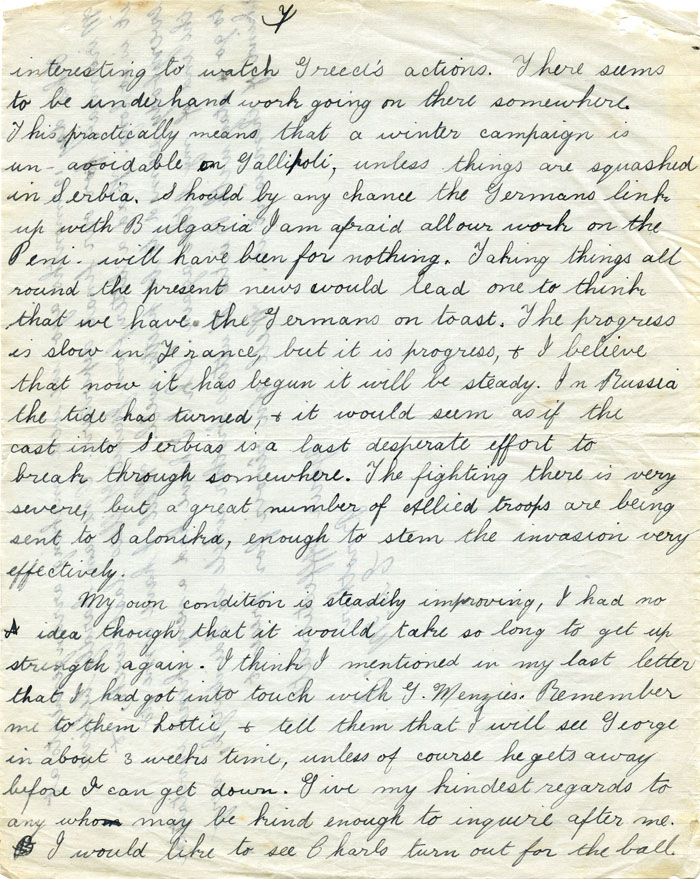 7
interesting to watch Greece's actions. There seems
to be underhand work going on there somewhere.
This practically means that a winter campaign is
un-avoidable on Gallipoli, unless things are squashed
in Serbia. Should by any chance the Germans link
up with Bulgaria I am afraid all our work on the
Peni. will have been for nothing. Taking things all
round the present news would lead one to think
that we have the Germans on toast. The progress
is slow in France, but it is progress, & I believe
that now it has begun it will be steady. In Russia
the tide has turned, & it would seem as if the
cast into Serbia is a last desperate effort to
break through somewhere. The fighting there is very
severe, but a great number of Allied troops are being
sent to Salonika, enough to stem the invasion very
effectively.
My own condition is steadily improving, I had no
idea though that it would take so long to get up
strength again. I think I mentioned in my last letter
that I had got into touch with G. Menzies. Remember
me to them Lottie, & tell them that I will see George
in about 3 weeks time, unless of course he gets away
before I can get down. Give my kindest regards to
any who may be kind enough to inquire after me.
I would like to see Charls turn out for the ball